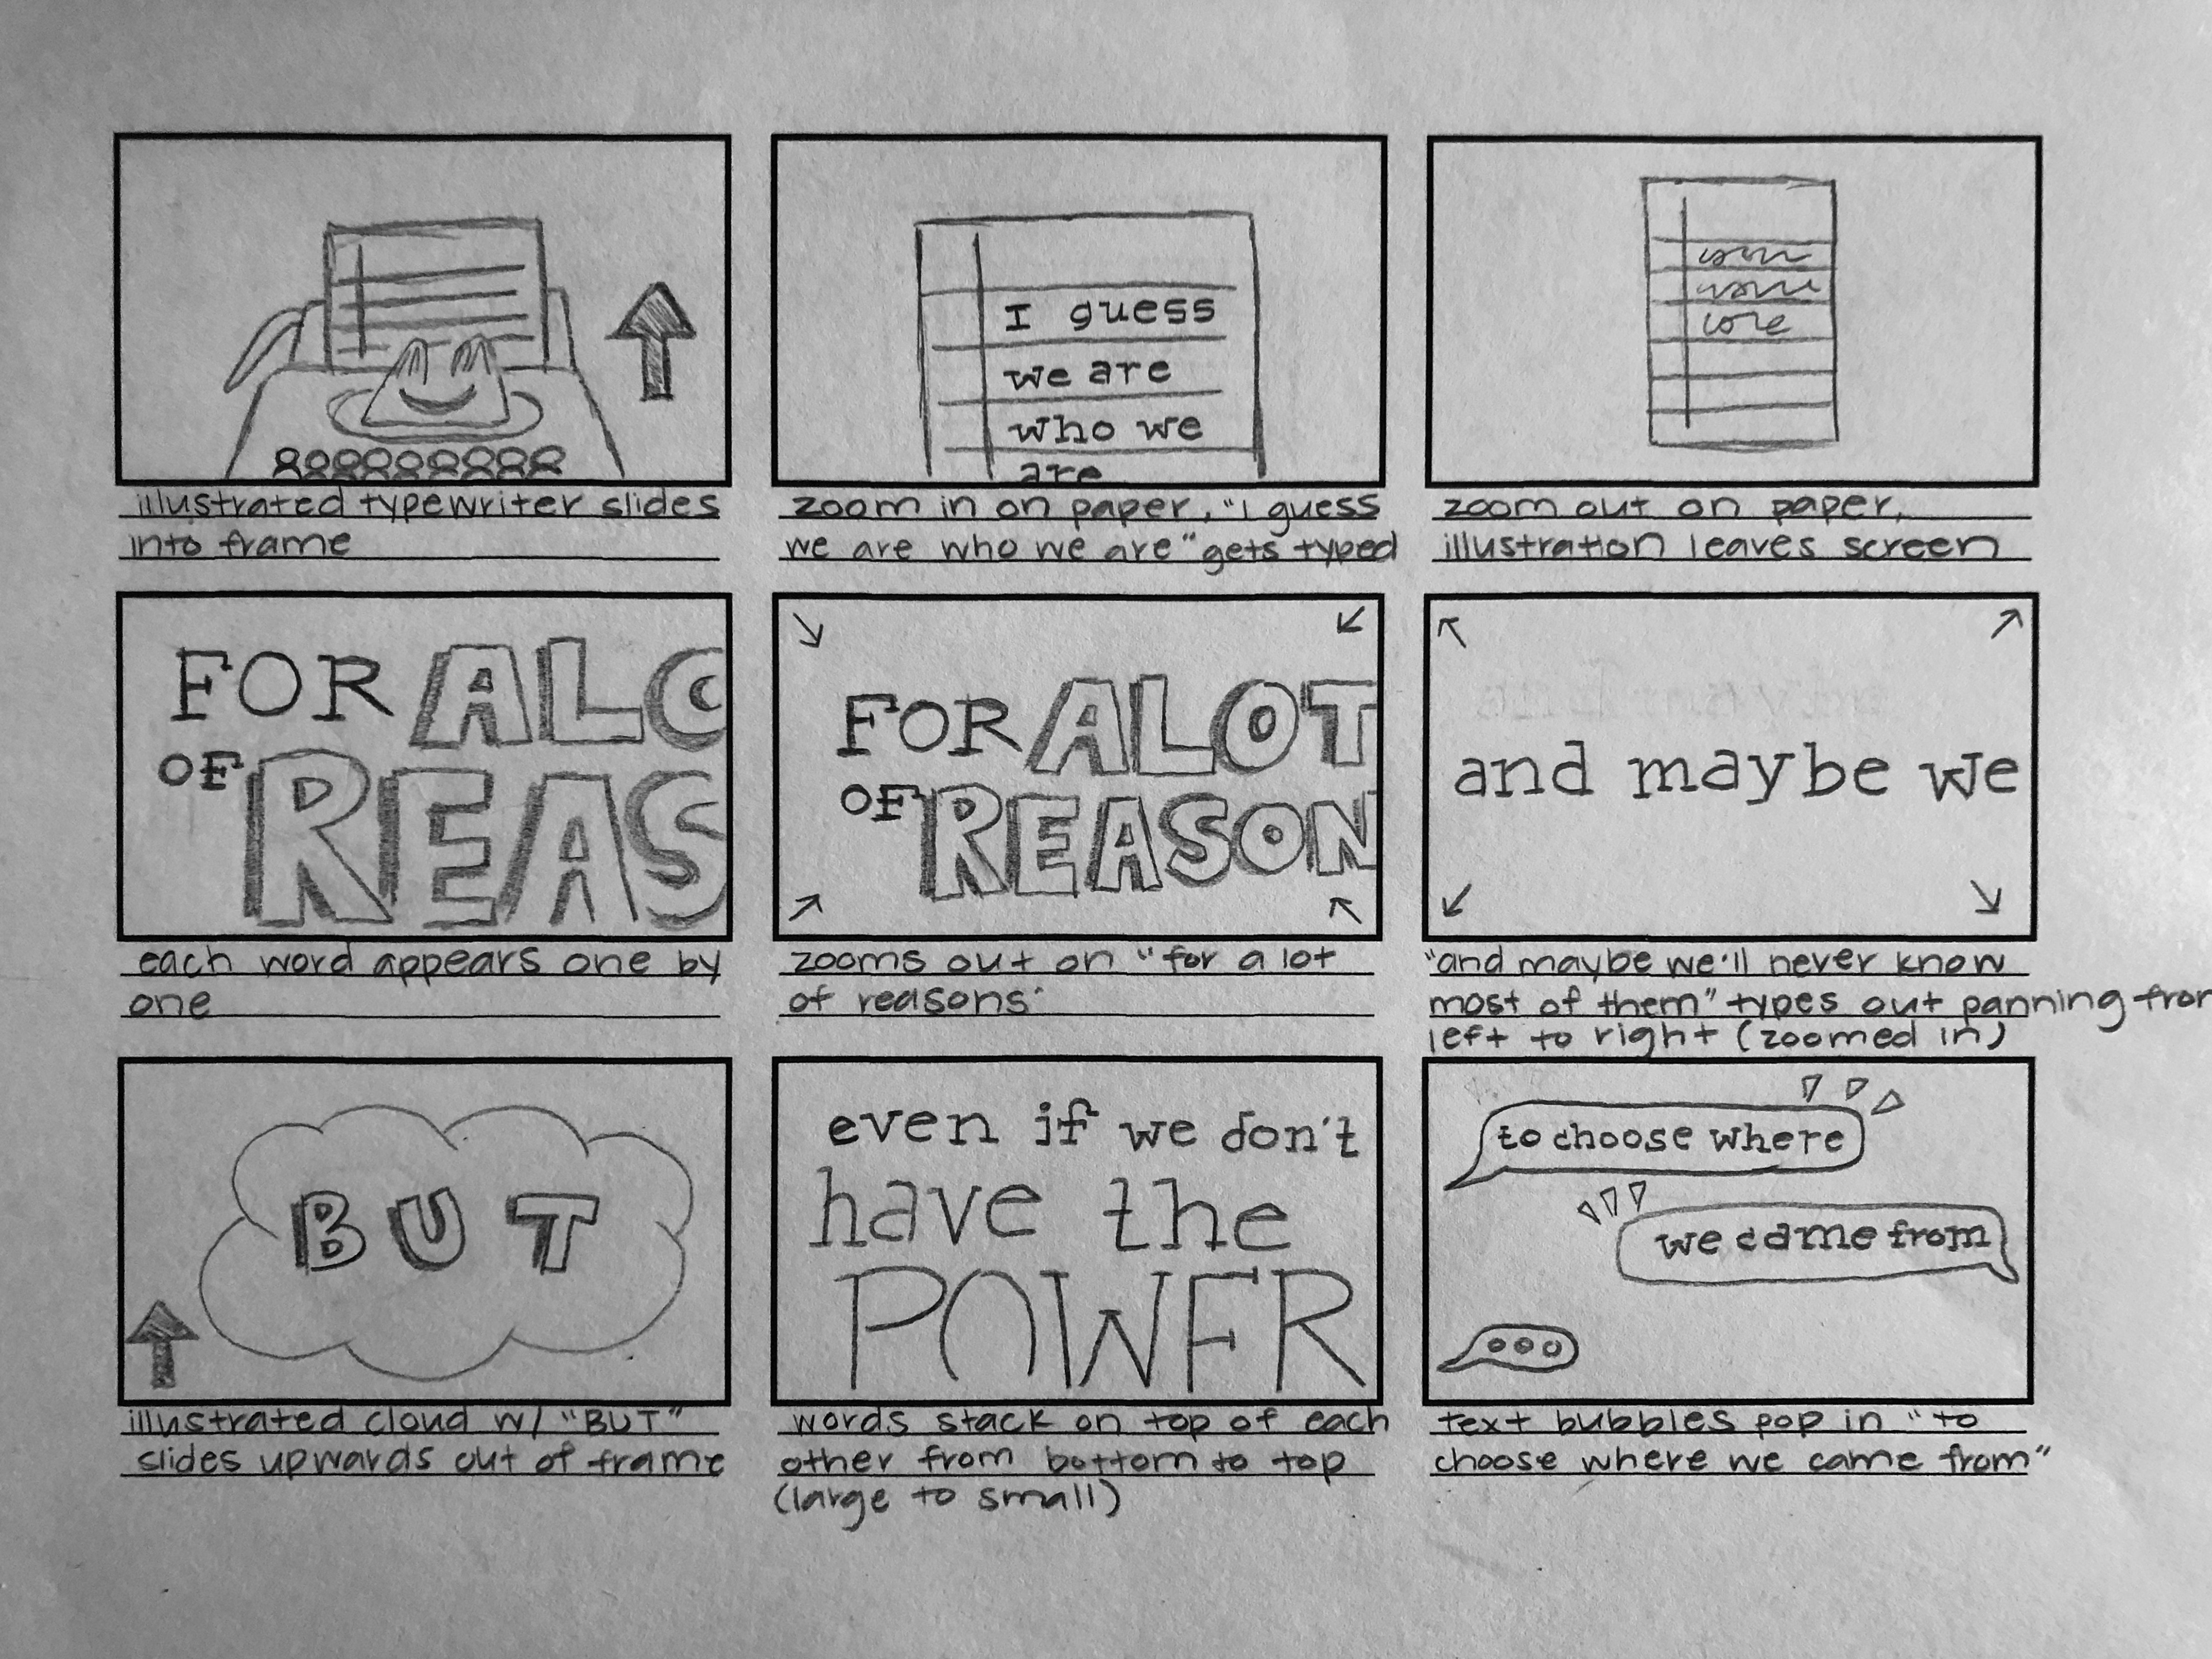 I guess
we are
who we
are
illustrated typewriter slides
into frame
zoom in on paper, "I guess
we are who we are" gets typed
zoom out on paper,
illustration leaves screen
FOR ALO
OF REAS
each word appears one by
one
FOR ALOT
OF REASON
zooms out on "for a lot
of reasons"
and maybe we
"and maybe we'll never know
most of them" types out panning from
left to right (zoomed in)
BUT
illustrated cloud w/ "BUT"
slides upwards out of frame
even if we don't
have the
POWER
words stack on top of each
other from bottom to top
(large to small)
to choose where
we came from
text bubbles pop in "to
choose where we came from"